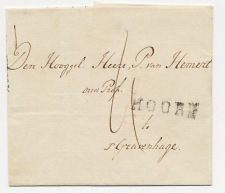 Den Hooggel. Heere, P. van Hemert
oud Prof.
HOORN
te
s'Gravenhage.